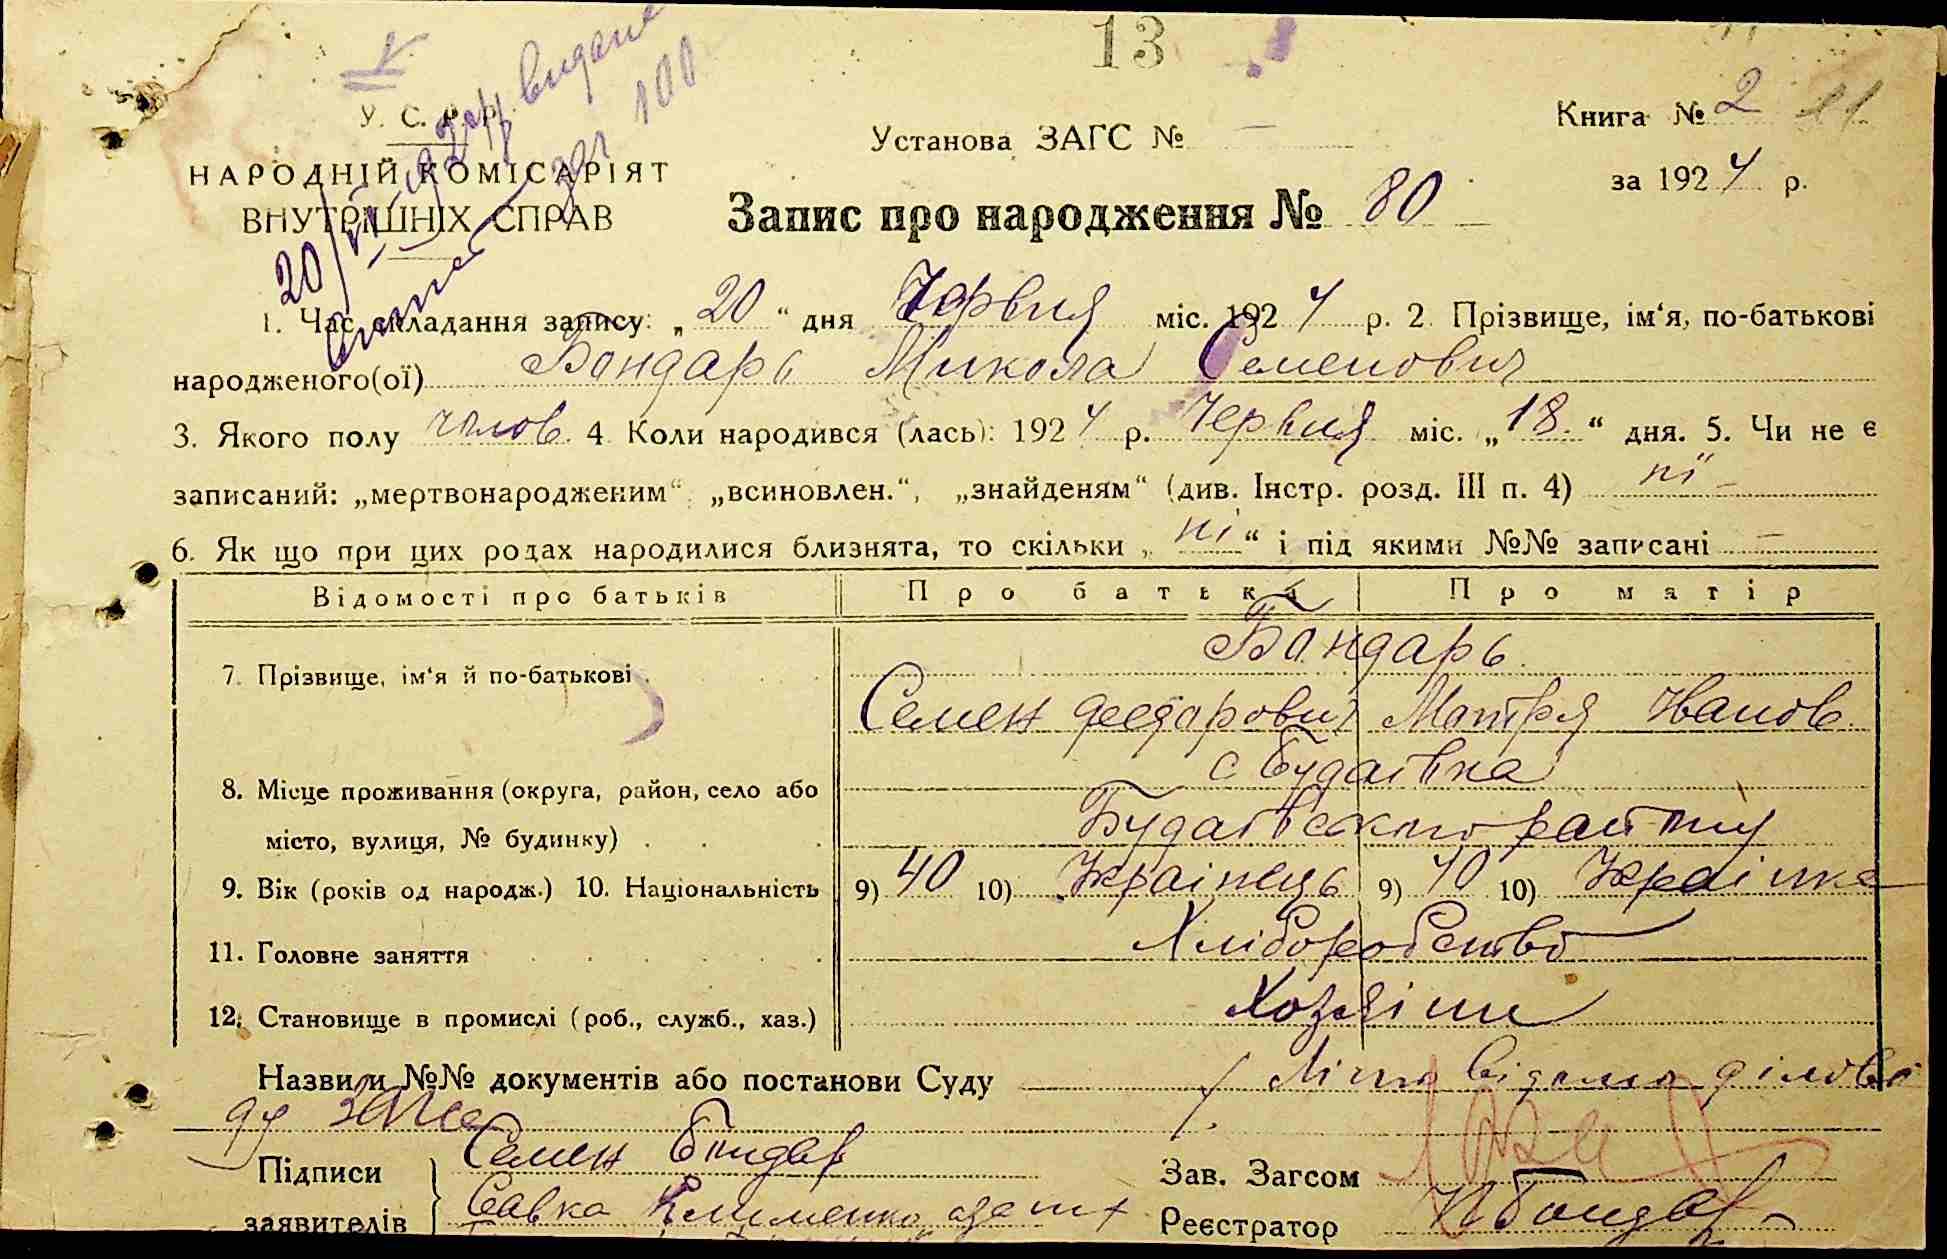 13
У. С. Р. Р.
НАРОДНІЙ КОМІСАРІЯТ
ВНУТРІШНІХ СПРАВ
Установа ЗАГС № —
Книга № 2 11
за 1924 р.
Запис про народження № 80
1. Час складання запису: „20“ дня Червня міс. 1924 р. 2. Прізвище, ім‘я, по-батькові
народженого(ої) Бондарь Микола Семенович
3. Якого полу чолов. 4 Коли народився (лась): 1924 р. Червня міс. „18.“ дня. 5. Чи не є
записаний: „мертвонародженим“ „всиновлен.“, „знайденям“ (див. Інстр. розд. III п. 4) ні
6. Як що при цих родах народилися близнята, то скільки „ні“ і під якими №№ записані —
Відомості про батьків Про батька Про матір
7. Прізвище, ім‘я й по-батькові Бондарь
Семен Феодорович Мотря Иванов.
8. Місце проживання (округа, район, село або с Будаївка
місто, вулиця, № будинку) Будаївського району
9. Вік (років од народж.) 10. Національність 9) 40 10) Українець 9) 40 10) Українка
11. Головне заняття Хліборобство
12. Становище в промислі (роб., служб., хаз.) Хозяїни
Назви й №№ документів або постанови Суду — Лічно відомо діловоду
ду ЗАГСа
Підписи Семен Бондар
заявителів Савка Клименко
Зав. Загсом
Реєстратор Бондар